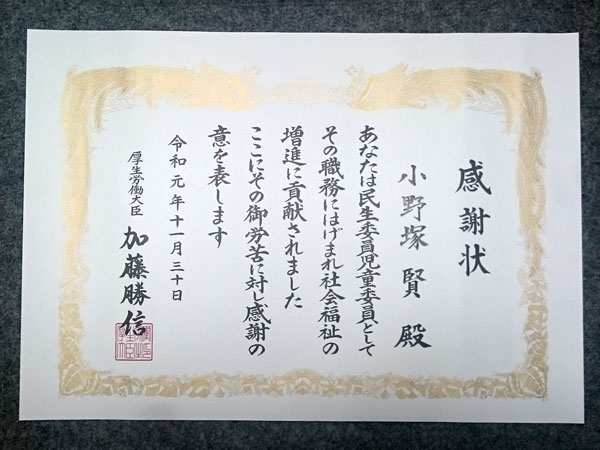 感謝状
小野塚賢殿
あなたは民生委員児童委員として
その職務にはげまれ社会福祉の
増進に貢献されました
ここにその御労苦に対し感謝の
意を表します
令和元年十一月三十日
厚生労働大臣 加藤勝信